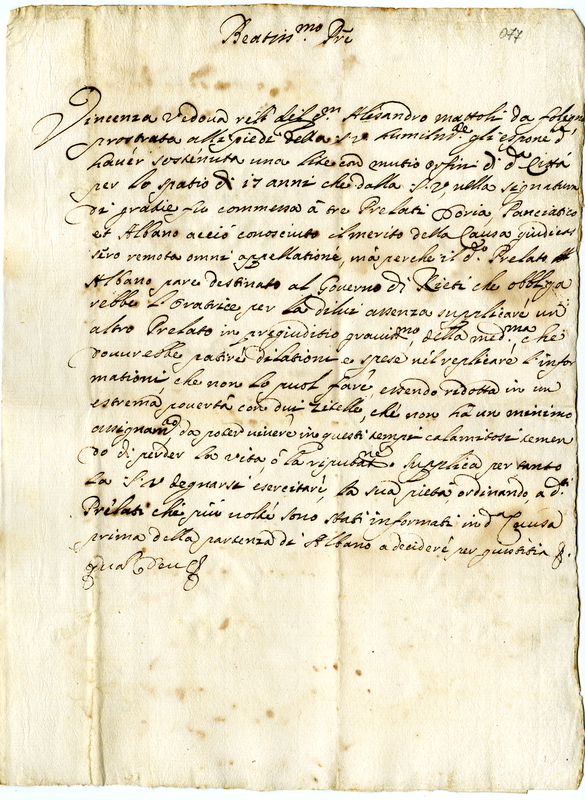 Beatiss.mo Pre
977
Vincenza Vedova rel: del q.m Alesandro Mattoli da foligno
prostrata alli piedi della S.V. humilm.te gli espone d'
haver sostenuta una lite con Mutio Orfini di d.a Città
per lo spatio di 17 anni che dalla S.V. nella signatura
di gratie fu commessa à tre Prelati Doria Panciatico
et Albano acciò conosciuto il merito della Causa giudicas
sero remota omni appellatione, mà perche il d.o Prelato
Albano pare destinato al Governo di Rieti che obbliga
rebbe l'Oratrice per la di lui assenza supplicare un'
altro Prelato in pregiuditio graviss.mo della med.ma, che
dovurebbe patire dilationi e spese nel replicare l'infor
mationi che non lo puol fare, essendo ridotta in un
estrema povertà con dui zitelle, che non hà un minimo
assignam.to da poter vivere in questi tempi calamitosi temen
do di perder la vita, ò la riputat.ne Supplica per tanto
la S.V. degnarsi esercitare, la sua pietà ordinando, a d.ti
Prelati che più volte sono stati informati in d.a Causa
prima della partenza di Albano a decidere per giustitia &.
Quam Deus &